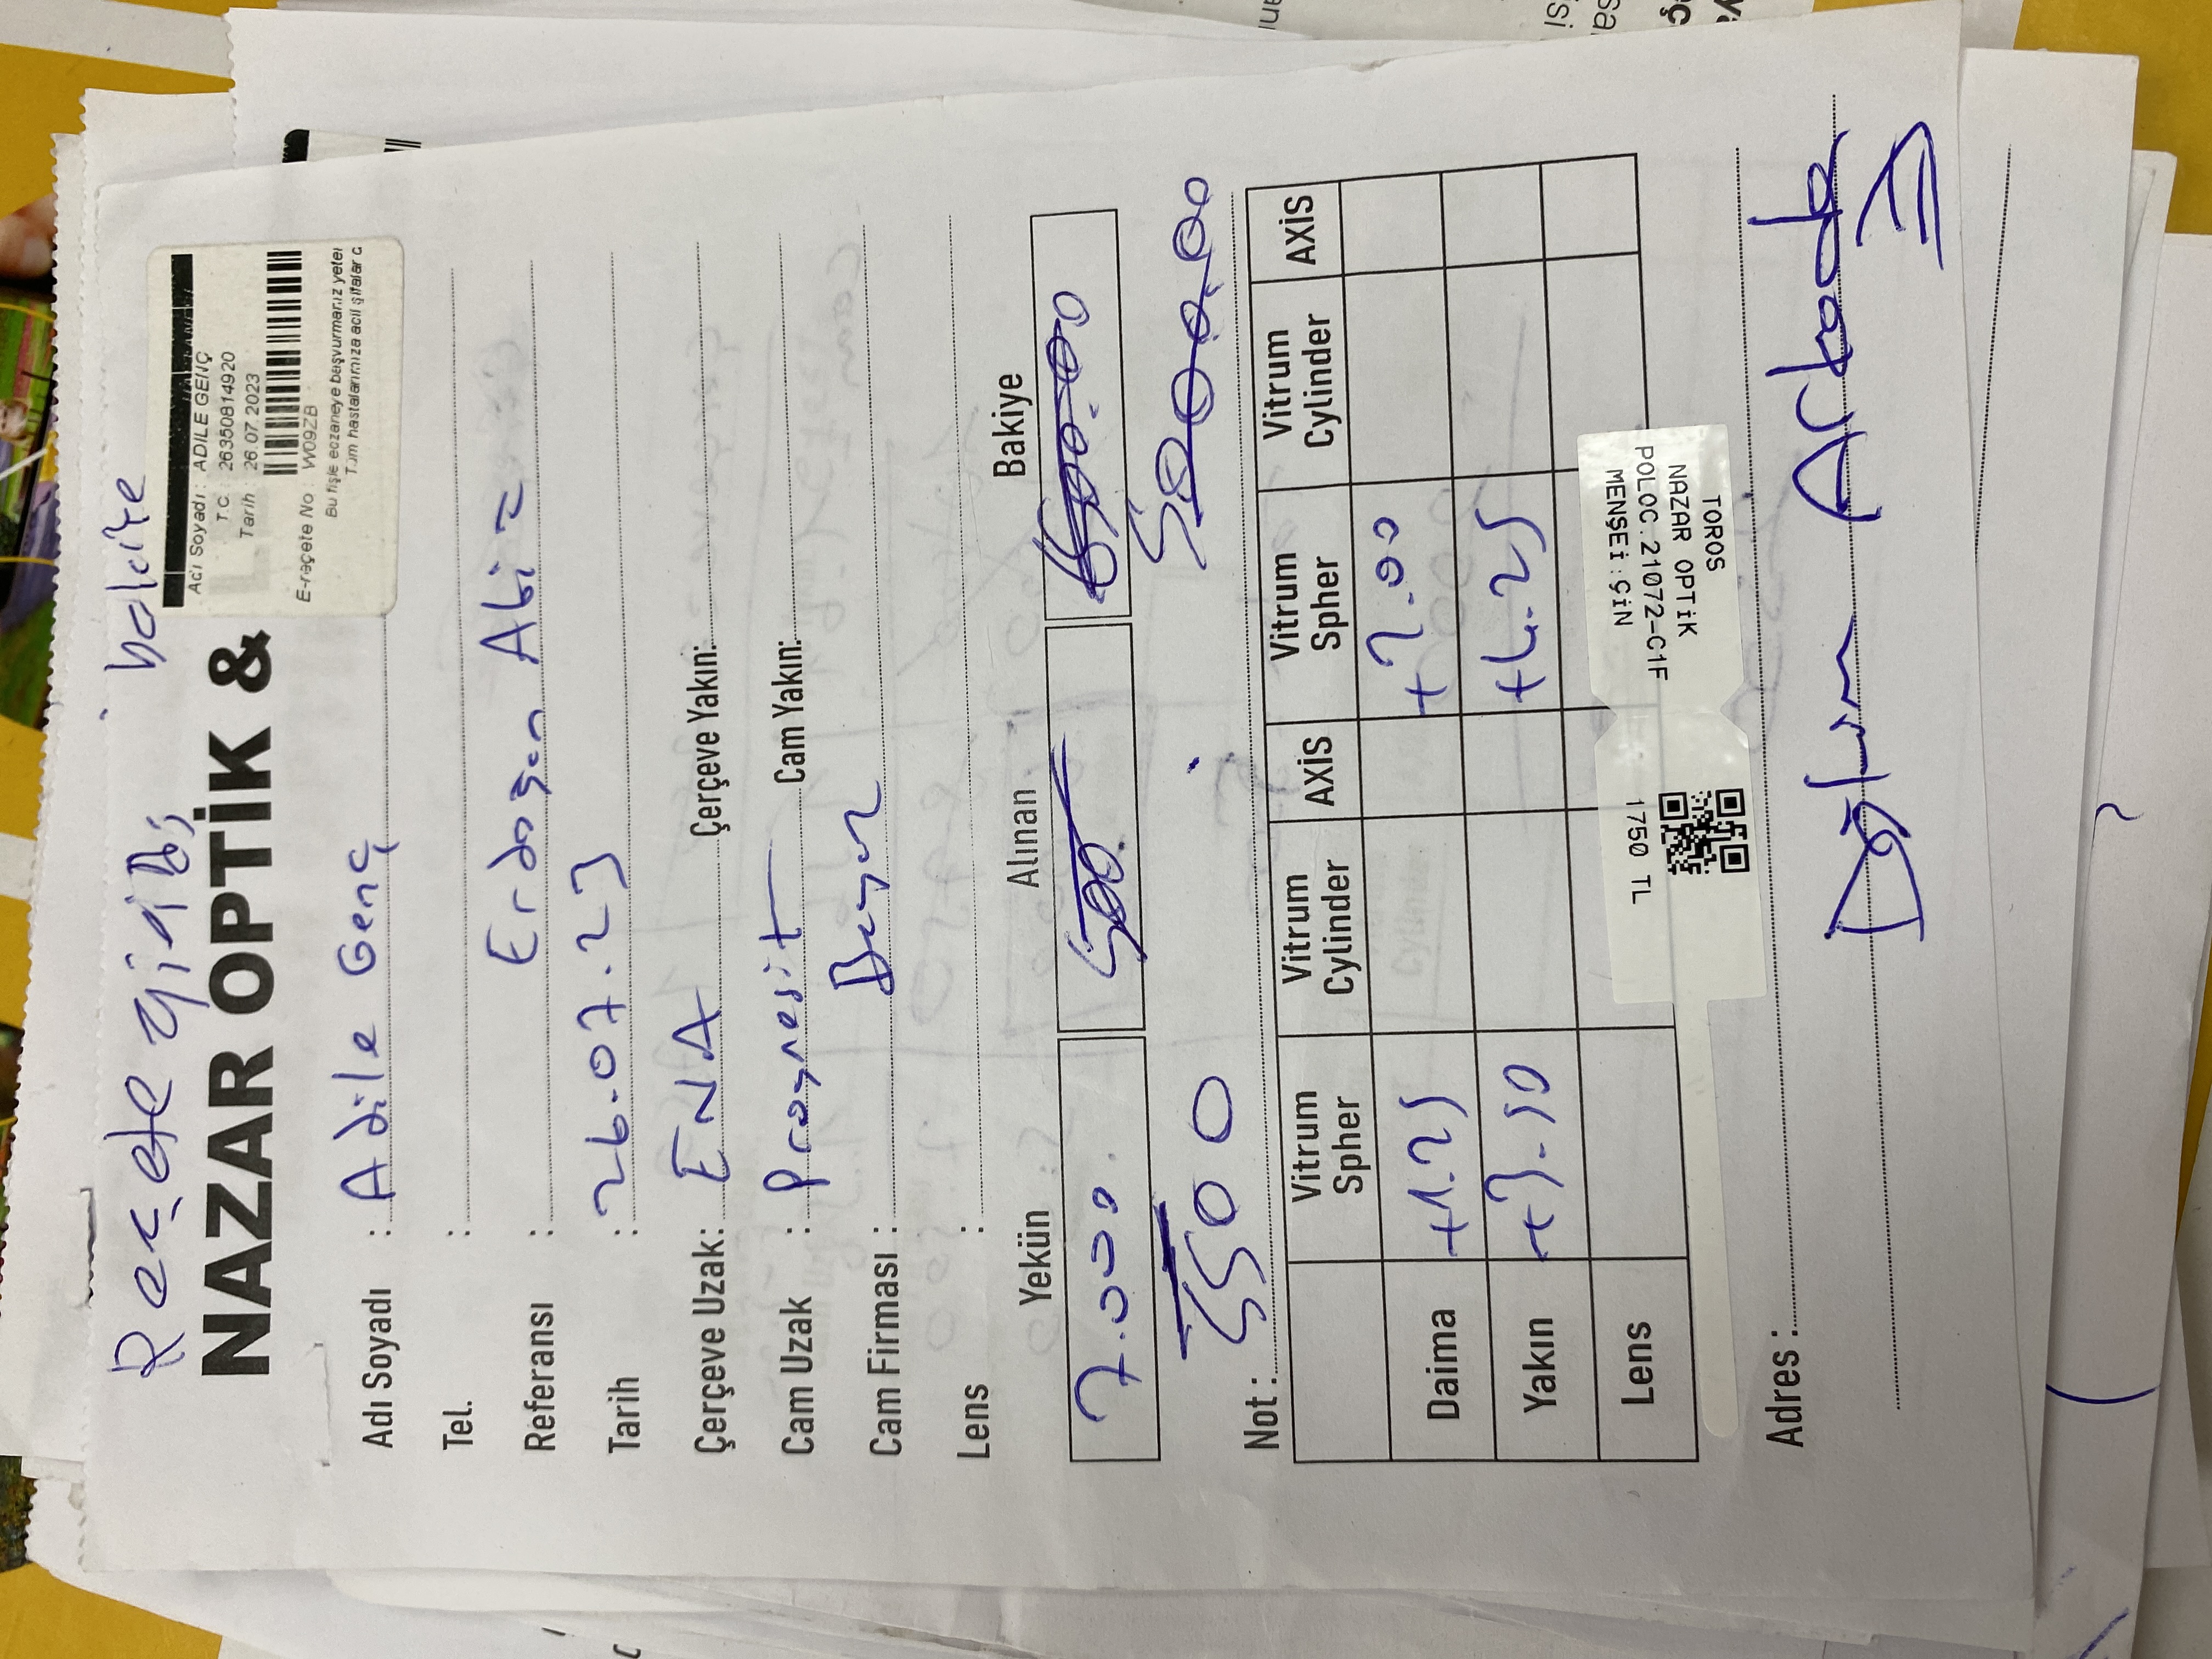 Reçete girildi bakiye
NAZAR OPTİK &
Adı Soyadı : ADILE GENÇ
T.C. 26350814920
Tarih 26.07.2023
E-reçete No : W09ZB
Bu fişle eczaneye başvurmanız yeter
Tüm hastalarımıza acil şifalar d
Adı Soyadı : Adile Genç
Tel. :
Referansı : Erdoğan Abi =
Tarih : 26.07.23
Çerçeve Uzak: ENA Çerçeve Yakın:
Cam Uzak : Progresif Cam Yakın:
Cam Firması : Beyaz
Lens :
Yekün Alınan Bakiye
7.000. 500. 6500.00
5500 5000.00
Not :
Vitrum Spher Vitrum Cylinder AXİS Vitrum Spher Vitrum Cylinder AXİS
Daima +1.25 +2.00
Yakın +3.50 +4.25
Lens
TOROS
NAZAR OPTİK
POLOC.21072-C1F
MENŞEİ:ÇİN
1750 TL
Adres :
Arkada